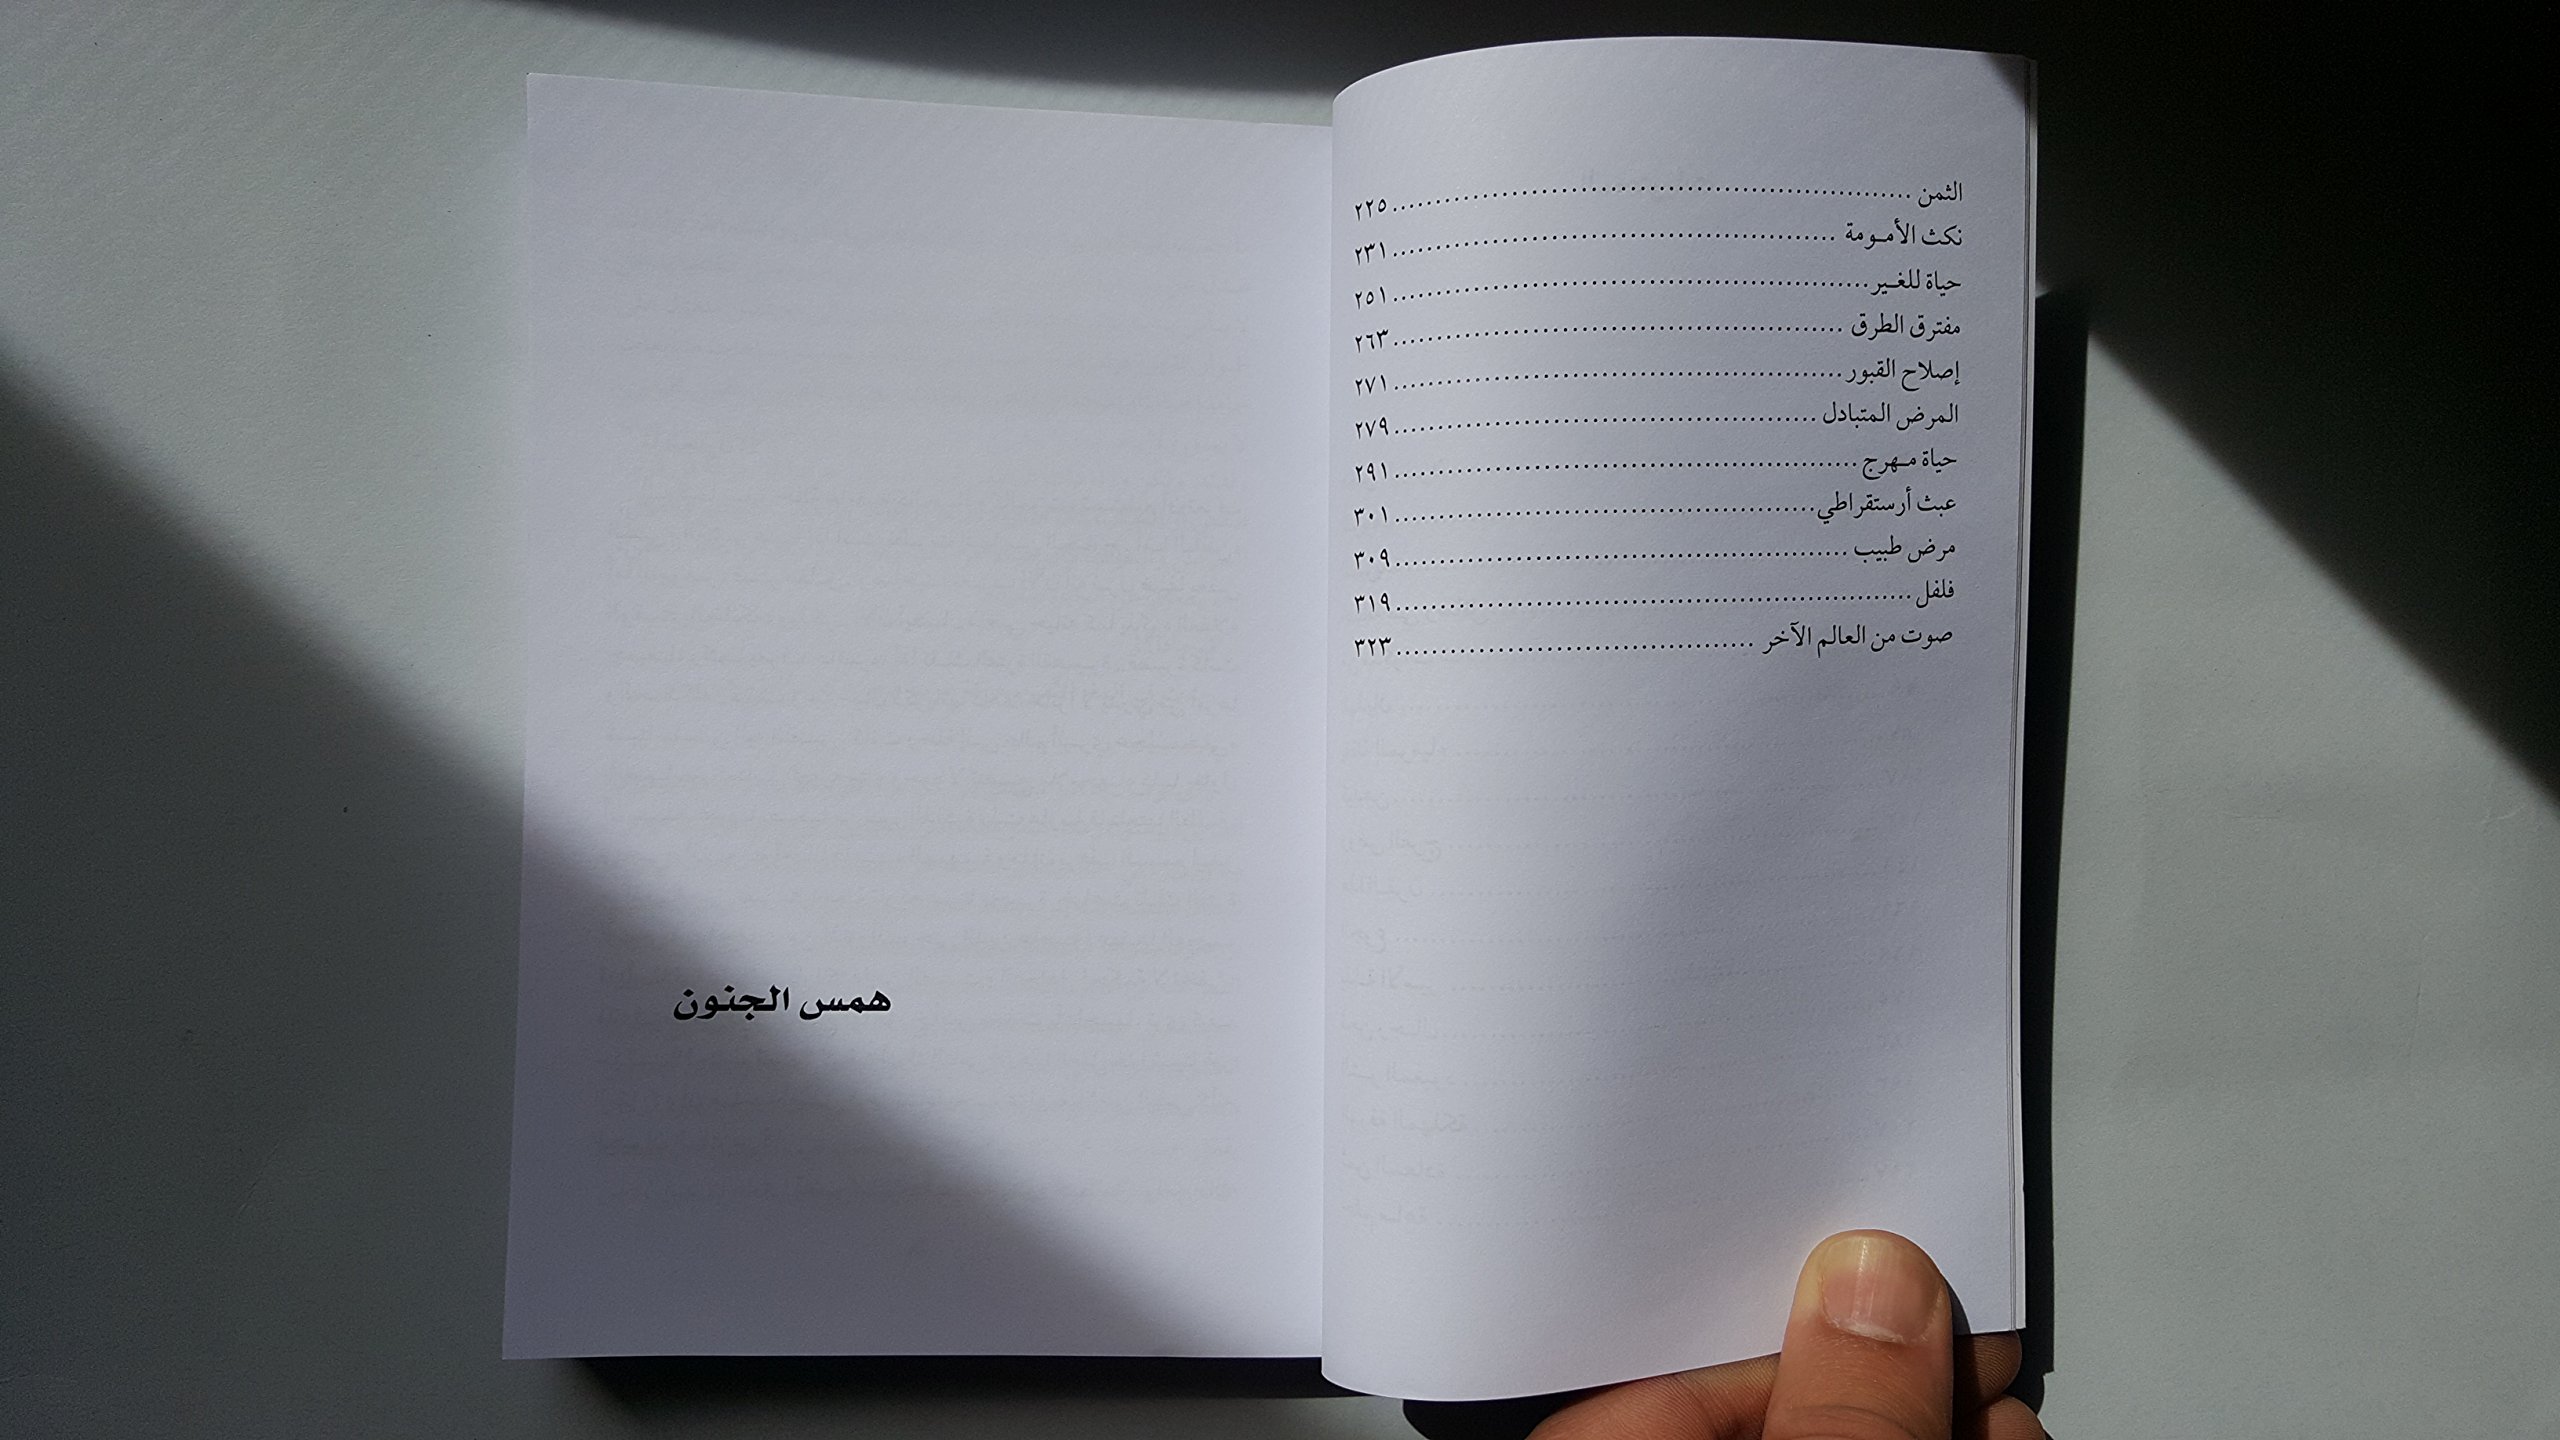 الثمن ........ ٢٢٥
نكث الأمـومة ........ ٢٣١
حياة للغـير ........ ٢٥١
مفترق الطرق ........ ٢٦٣
إصلاح القبور ........ ٢٧١
المرض المتبادل ........ ٢٧٩
حياة مـهرج ........ ٢٩١
عبث أرستقراطي ........ ٣٠١
مرض طبيب ........ ٣٠٩
فلفل ........ ٣١٩
صوت من العالم الآخر ........ ٣٢٣
همس الجنون